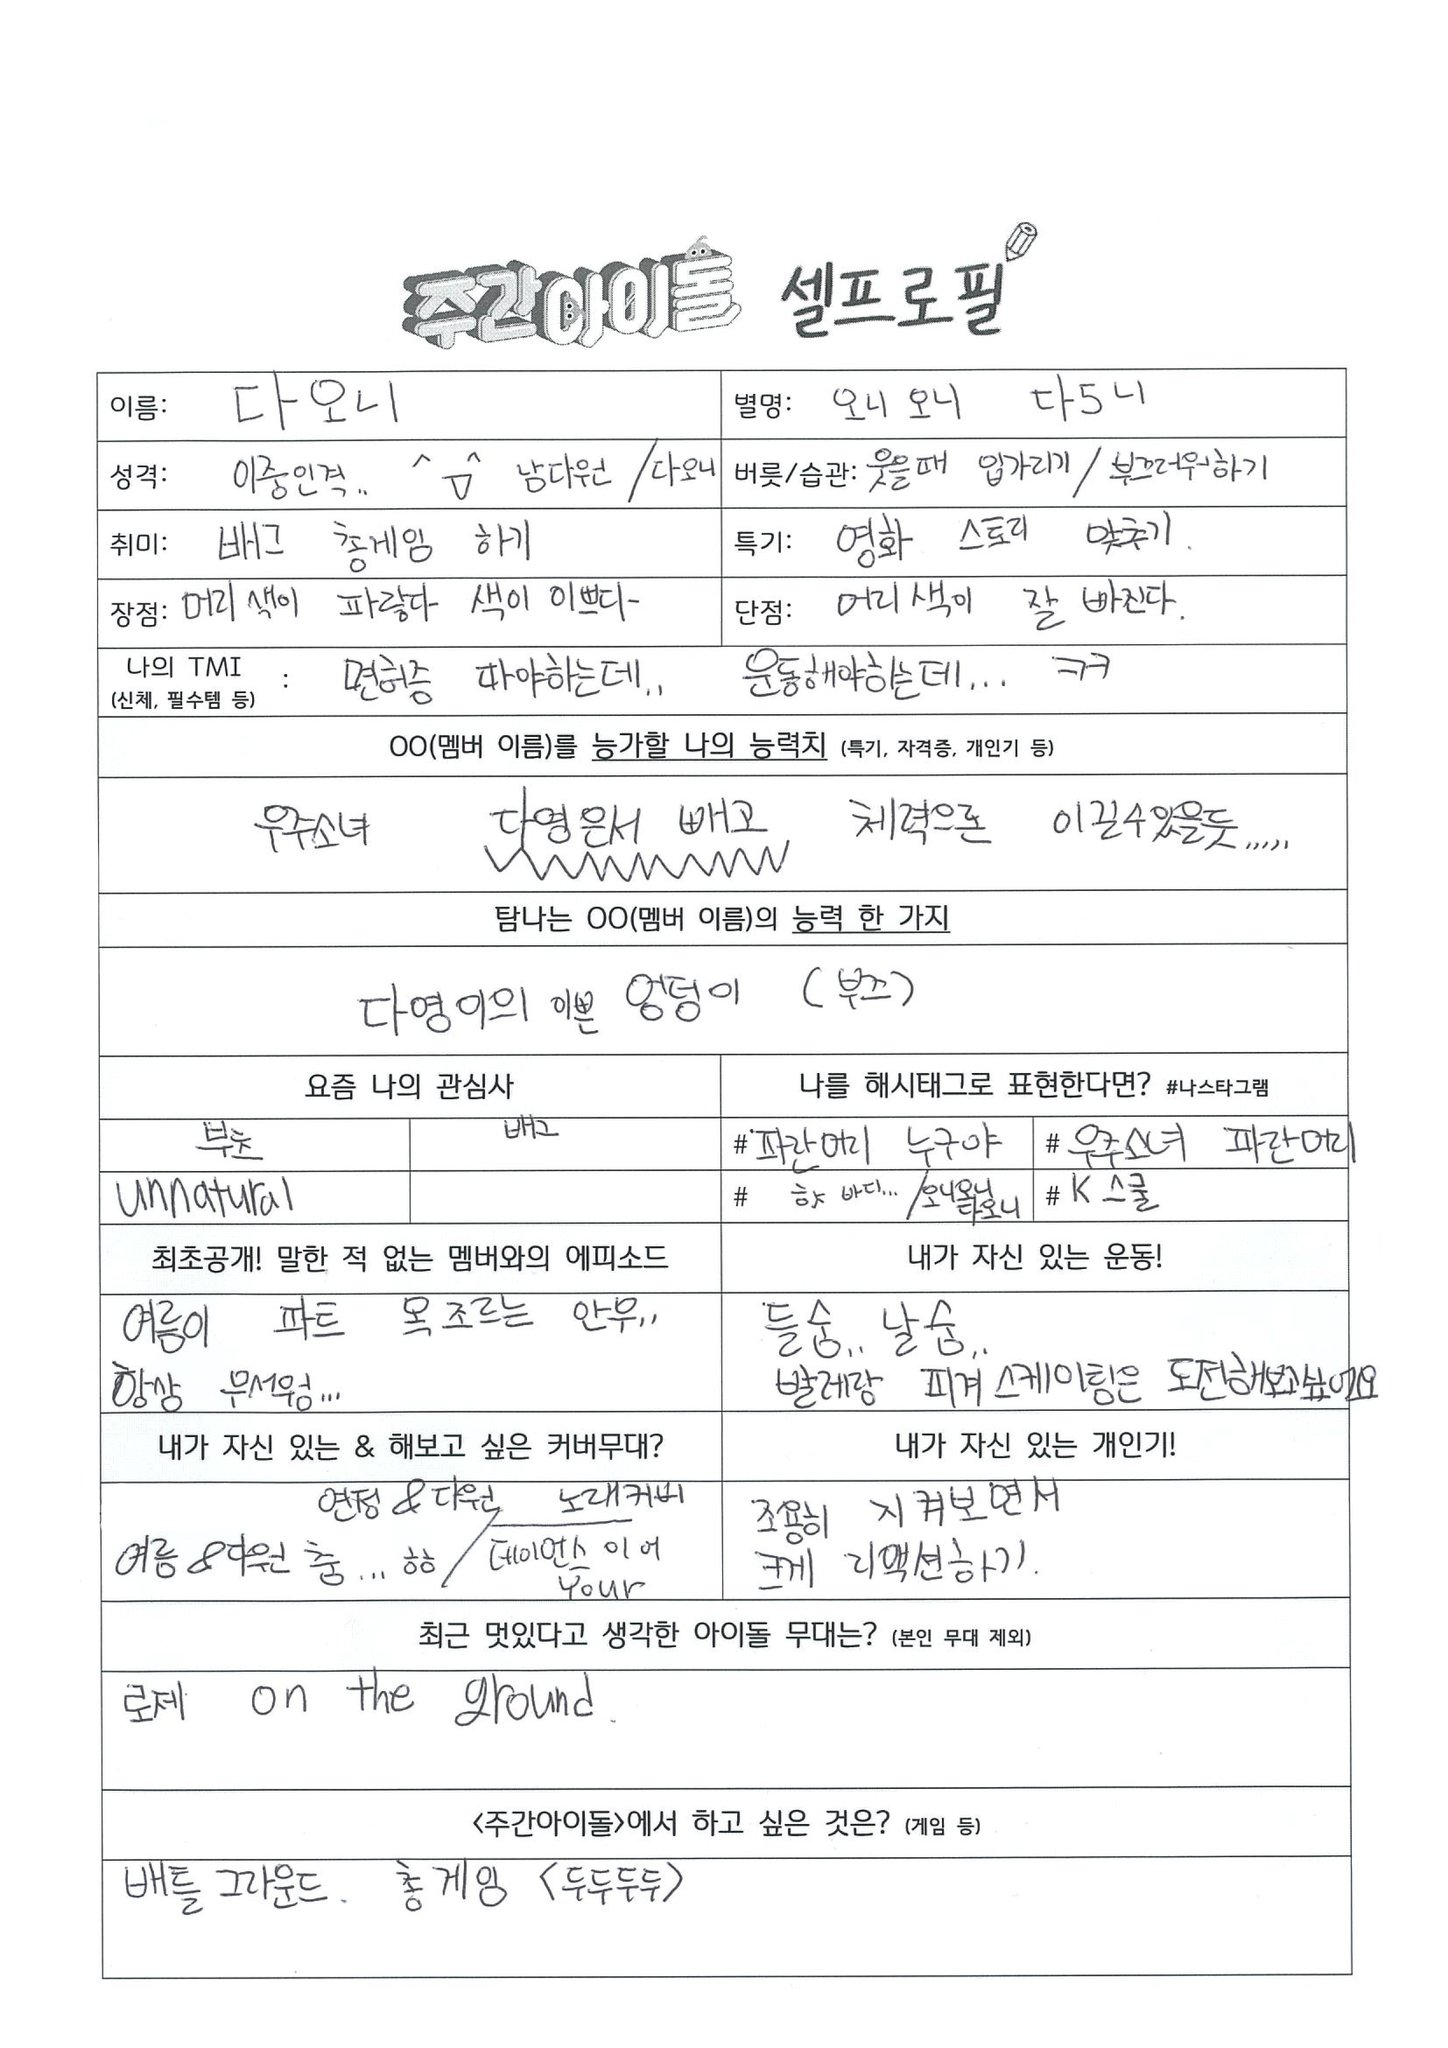 주간아이돌 셀프로필
이름: 다오니
별명: 오니 오니 다5니
성격: 이중인격.. ^ㅁ^ 남다원 / 다오니
버릇/습관: 웃을때 입가리기 / 부끄러워하기
취미: 배그 총게임 하기
특기: 영화 스토리 맞추기.
장점: 머리색이 파랗다 색이 이쁘다~
단점: 머리색이 잘 빠진다.
나의 TMI
(신체, 필수템 등) : 면허증 따야하는데.. 운동해야하는데... ㅋㅋ
OO(멤버 이름)를 능가할 나의 능력치 (특기, 자격증, 개인기 등)
우주소녀 다영은서 빼고 체력으론 이길수있을듯.....
탐나는 OO(멤버 이름)의 능력 한 가지
다영이의 이쁜 엉덩이 (부츠)
요즘 나의 관심사
나를 해시태그로 표현한다면? #나스타그램
부츠
배그
#파란머리 누구야
#우주소녀 파란머리
unnatural
# 핫바디... /오니오니
다오니
#K스쿨
최초공개! 말한 적 없는 멤버와의 에피소드
내가 자신 있는 운동!
여름이 파트 목조르는 안무..
항상 무서웡...
들숨.. 날숨..
발레랑 피겨스케이팅은 도전해보고싶어요
내가 자신 있는 & 해보고 싶은 커버무대?
내가 자신 있는 개인기!
연정&다원 노래커버
여름&다원 춤... ㅎㅎ / 데이먼스 이어
Your
조용히 지켜보면서
크게 리액션하기.
최근 멋있다고 생각한 아이돌 무대는? (본인 무대 제외)
로제 on the ground.
<주간아이돌>에서 하고 싶은 것은? (게임 등)
배틀그라운드. 총게임 <두두두두>